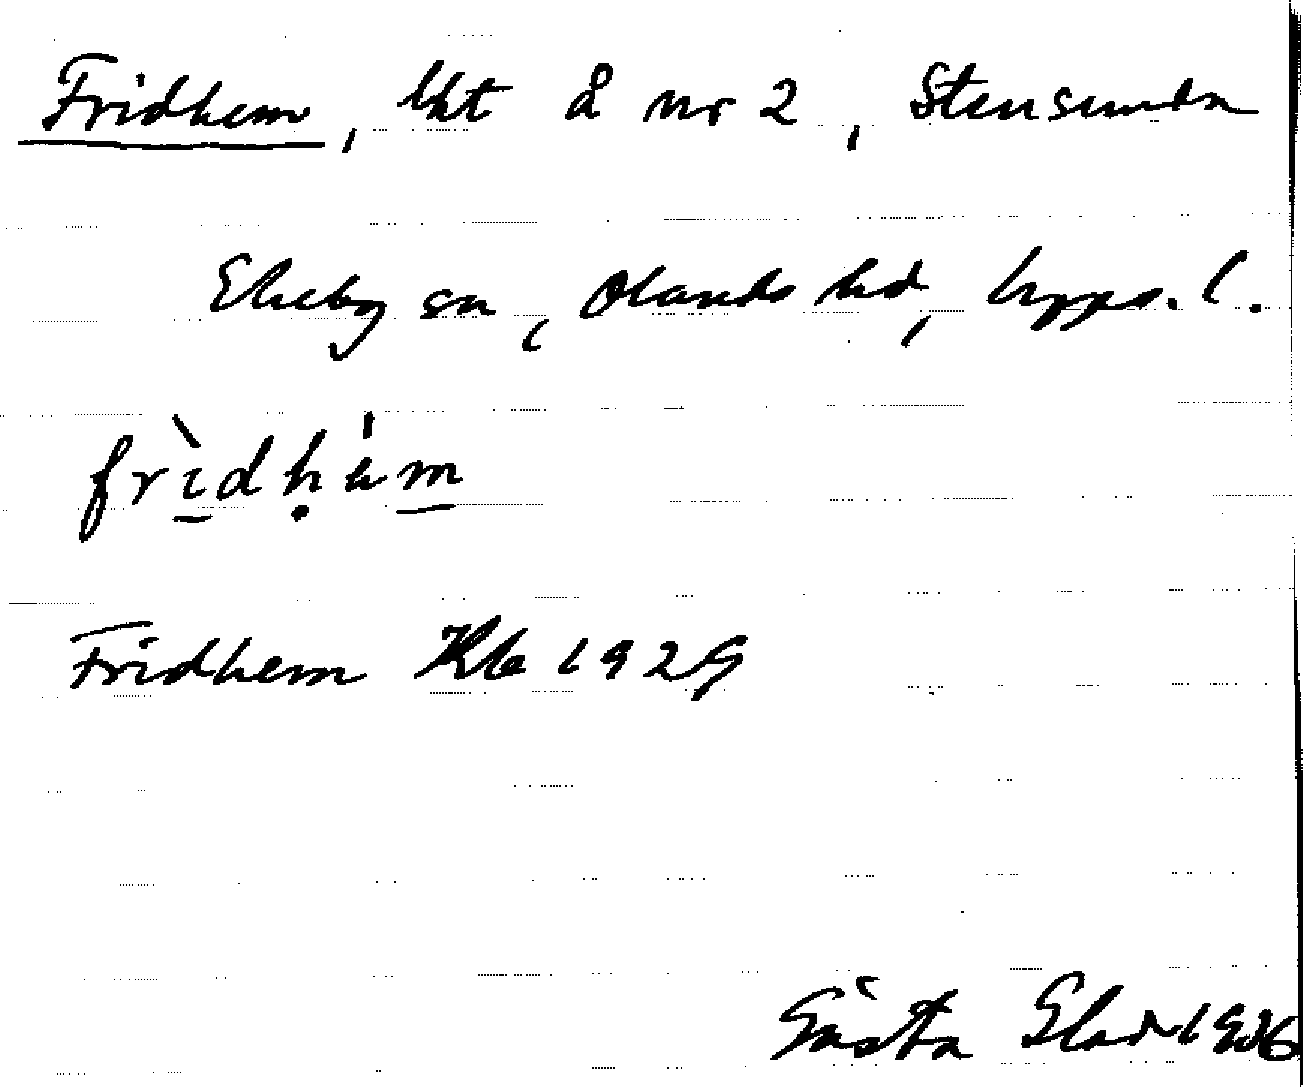 Fridhem, lht å nr 2, Stensunda
Ekeby sn, Olands hd, Upps. l.
frìdḥà̍m
Fridhem Kb 1929
Gösta Glad 1936